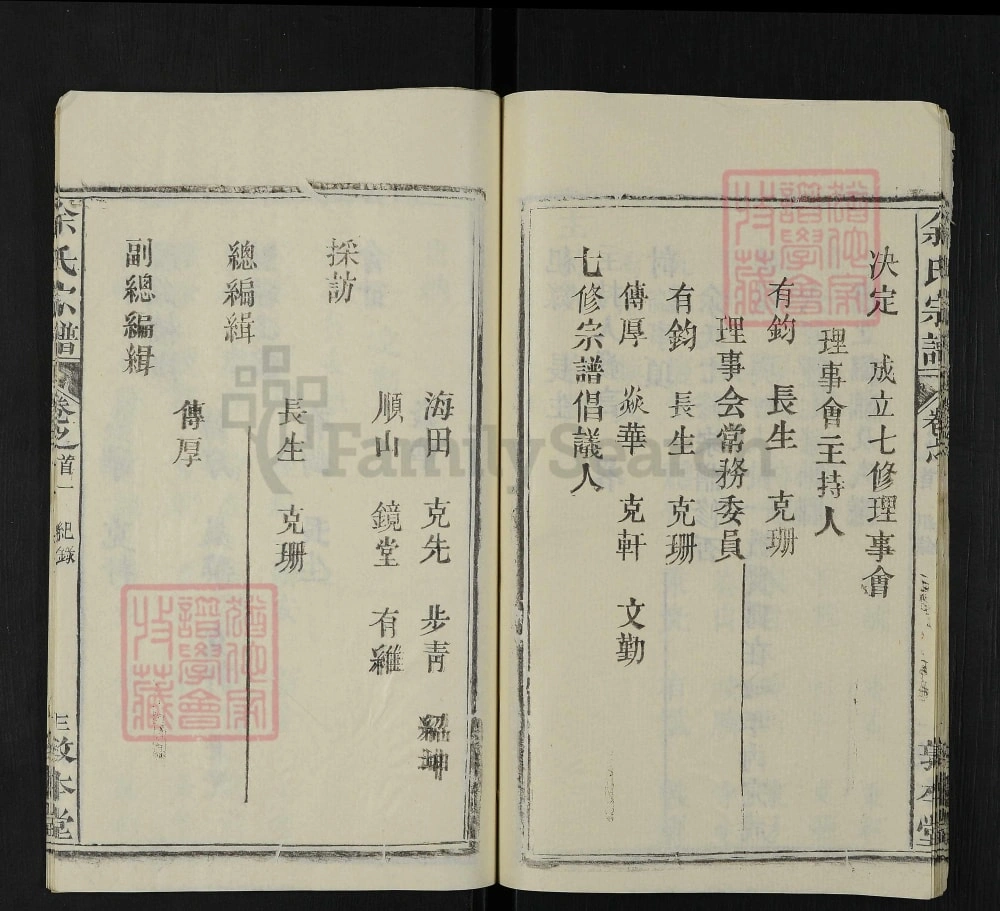 余氏宗譜
决定 成立七修理事會
理事會主持人
有鈞 長生 克珊
理事会常務委員
有鈞 長生 克珊
傳厚 焱華 克軒 文勤
七修宗譜倡議人
海田 克先 步青 紹坤
順山 鏡堂 有雞
採訪
長生 克珊
總編緝
傳厚
副總編緝
余氏宗譜 卷之首一 紀録 敦本堂
FamilySearch